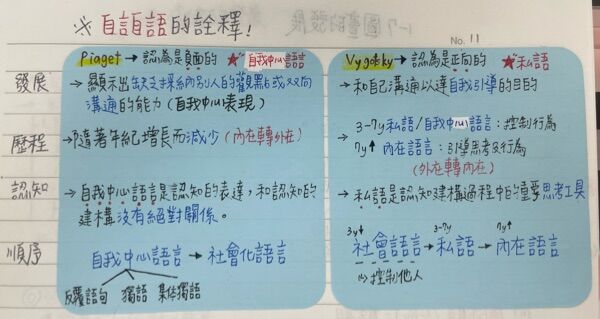 ※ 自言自語的詮釋!
No. 11
Piaget → 認為是負面的 ★自我中心語言
Vygotsky → 認為是正向的 ★私語
發展
→ 顯示出缺乏採納別人的觀點或双向
溝通的能力(自我中心表現)
→ 和自己溝通以達自我引導的目的
歷程
→ 隨著年紀增長而減少(內在轉外在)
→ 3-7y 私語/自我中心語言:控制行為
7y↑ 內在語言:引導思考及行為
(外在轉內在)
認知
→ 自我中心語言是認知的表達,和認知的
建構沒有絕對關係。
→ 私語是認知建構過程中的重要思考工具
順序
自我中心語言 → 社會化語言
反覆語句 獨語 集体獨語
3y↓ 3-7y 7y↑
社會語言 → 私語 → 內在語言
控制他人